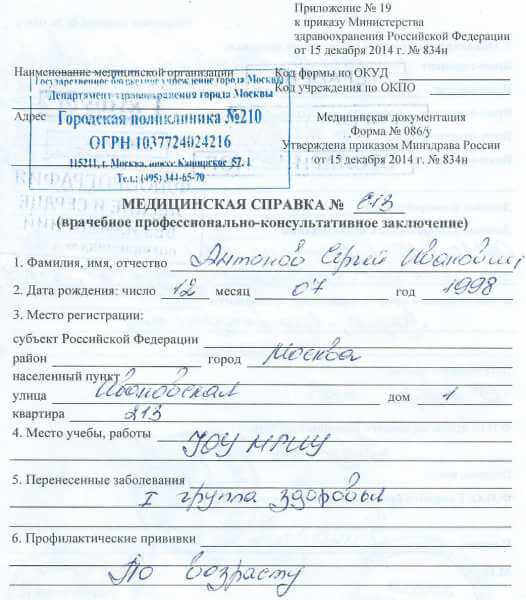 Приложение № 19
к приказу Министерства
здравоохранения Российской Федерации
от 15 декабря 2014 г. № 834н
Наименование медицинской организации
Код формы по ОКУД
Код учреждения по ОКПО
Государственное бюджетное учреждение города Москвы
Департамент здравоохранения города Москвы
Адрес
Городская поликлиника №210
ОГРН 1037724024216
115211, г. Москва, Каширское 57, 1
Тел.: (495) 344-65-70
Медицинская документация
Форма № 086/у
Утверждена приказом Минздрава России
от 15 декабря 2014 г. № 834н
МЕДИЦИНСКАЯ СПРАВКА № 213
(врачебное профессионально-консультативное заключение)
1. Фамилия, имя, отчество Антонов Сергей Иванович
2. Дата рождения: число 12 месяц 07 год 1998
3. Место регистрации:
субъект Российской Федерации
район город Москва
населенный пункт
улица Ивановская дом 1
квартира 213
4. Место учебы, работы
5. Перенесенные заболевания
I группа здоровья
6. Профилактические прививки
По возрасту